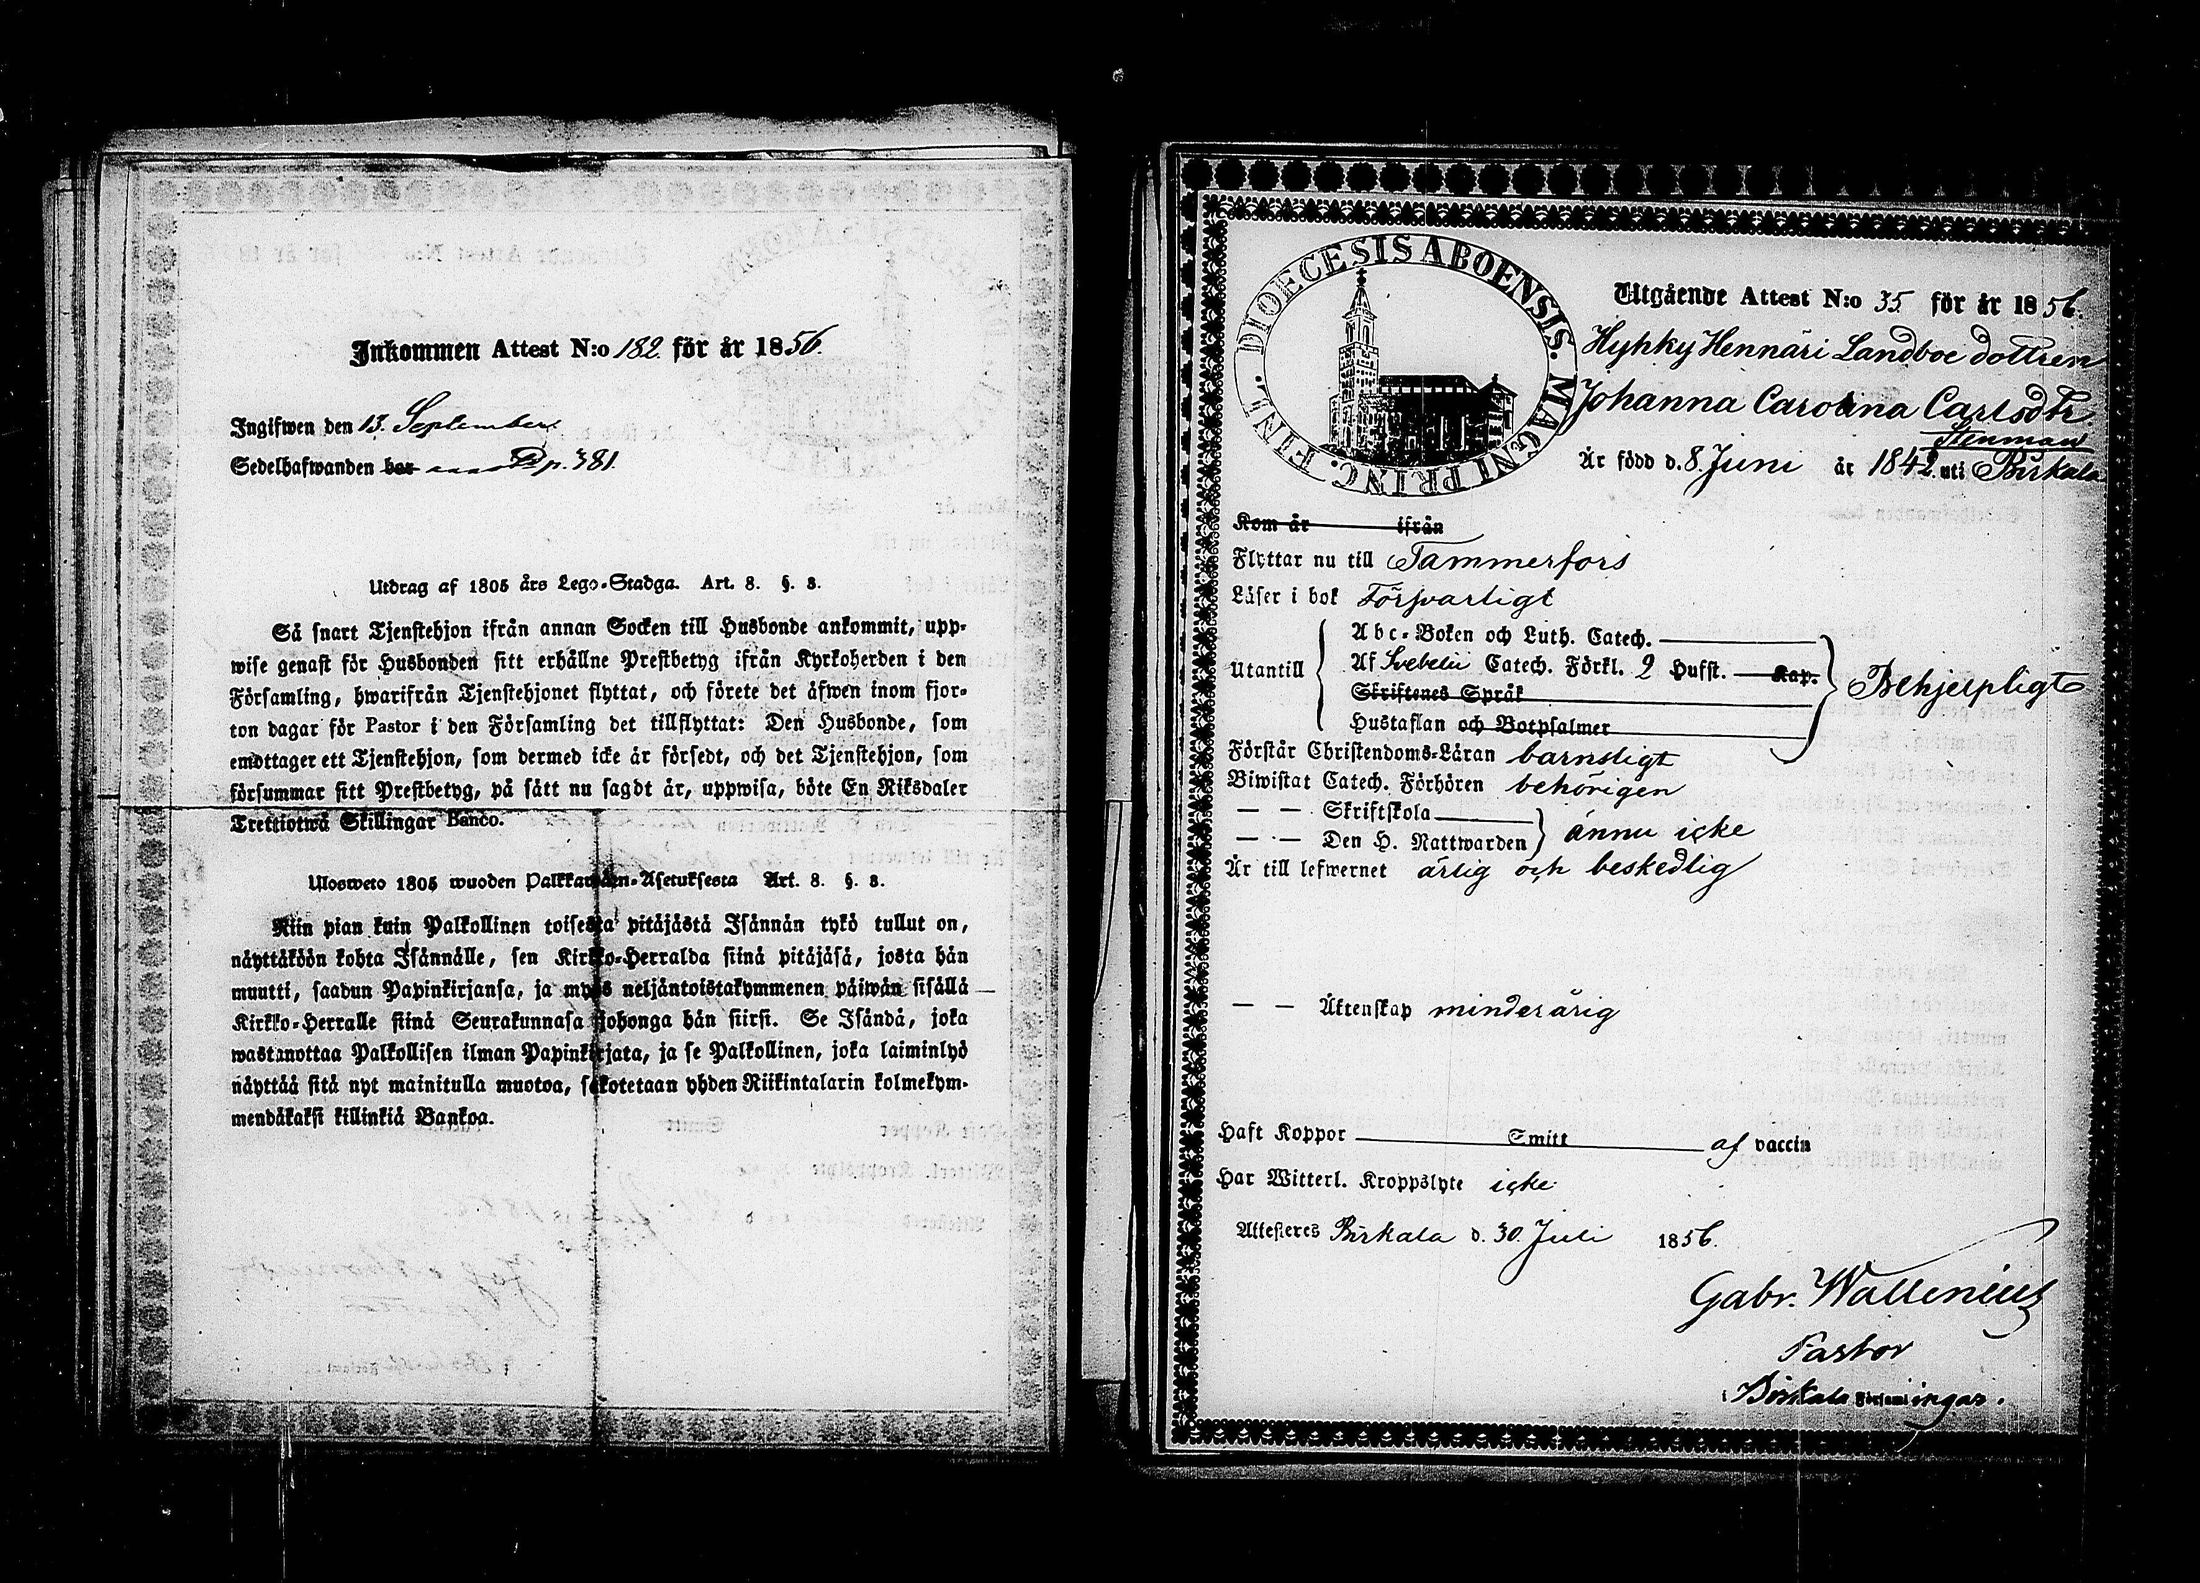 Inkommen Attest N:o 182. för år 1856.
Ingifwen den 13. September
Sedelhafwanden har p. 381.
Utdrag af 1805 års Lego-Stadga. Art. 8. §. 8.
Så snart Tjenstehjon ifrån annan Socken till Husbonde ankommit, upp-
wise genast för Husbonden sitt erhållne Prestbetyg ifrån Kyrkoherden i den
Församling, hwarifrån Tjenstehjonet flyttat, och förete det äfwen inom fjor-
ton dagar för Pastor i den Församling det tillflyttat: Den Husbonde, som
emottager ett Tjenstehjon, som dermed icke är försedt, och det Tjenstehjon, som
försummar sitt Prestbetyg, på sätt nu sagdt är, uppwisa, böte En Riksdaler
Trettiotwå Skillingar Banco.
Ulosweto 1805 wuoden Palkkawäen-Asetuksesta Art. 8. §. 8.
Niin pian kuin Palkollinen toisesta pitäjästä Isännän tykö tullut on,
näyttäköön kohta Isännälle, sen Kirkko-Herralda siinä pitäjäsä, josta hän
muutti, saadun Papinkirjansa, ja myös neljäntoistakymmenen päiwän sisällä
Kirkko-Herralle siinä Seurakunnasa johonga hän siirsi. Se Isändä, joka
wastanottaa Palkollisen ilman Papinkirjata, ja se Palkollinen, joka laiminlyö
näyttää sitä nyt mainitulla muotoa, sakotetaan yhden Riikintalarin kolmekym-
mendäkaksi killinkiä Bankoa.
DIOECESIS ABOENSIS. MAGNI PRINC. FINL.
Utgående Attest N:o 35 för år 1856.
Hyhky Hennäri Landboe dottren
Johanna Carolina Carlsdtr.
Stenman
Är född d. 8. Juni år 1842 uti Birkala
Kom år ifrån
Flyttar nu till Tammerfors
Läser i bok Försvarligt
Abc-Boken och Luth. Catech.
Utantill Af Svebelii Catech. Förkl. 2 Hufst. Kap. Behjelpligt
Skriftenes Språk
Hustaflan och Botpsalmer
Förstår Christendoms-Läran barnsligt
Biwistat Catech. Förhören behörigen
— — Skriftskola
— — Den H. Nattwarden ännu icke
Är till lefwernet ärlig och beskedlig
— — Äktenskap minderårig
Haft Koppor Smitt af vaccin
Har Witterl. Kroppslyte icke
Attesteres Birkala d. 30. Juli 1856.
Gabr. Wallenius
Pastor
i Birkala Församlingar.